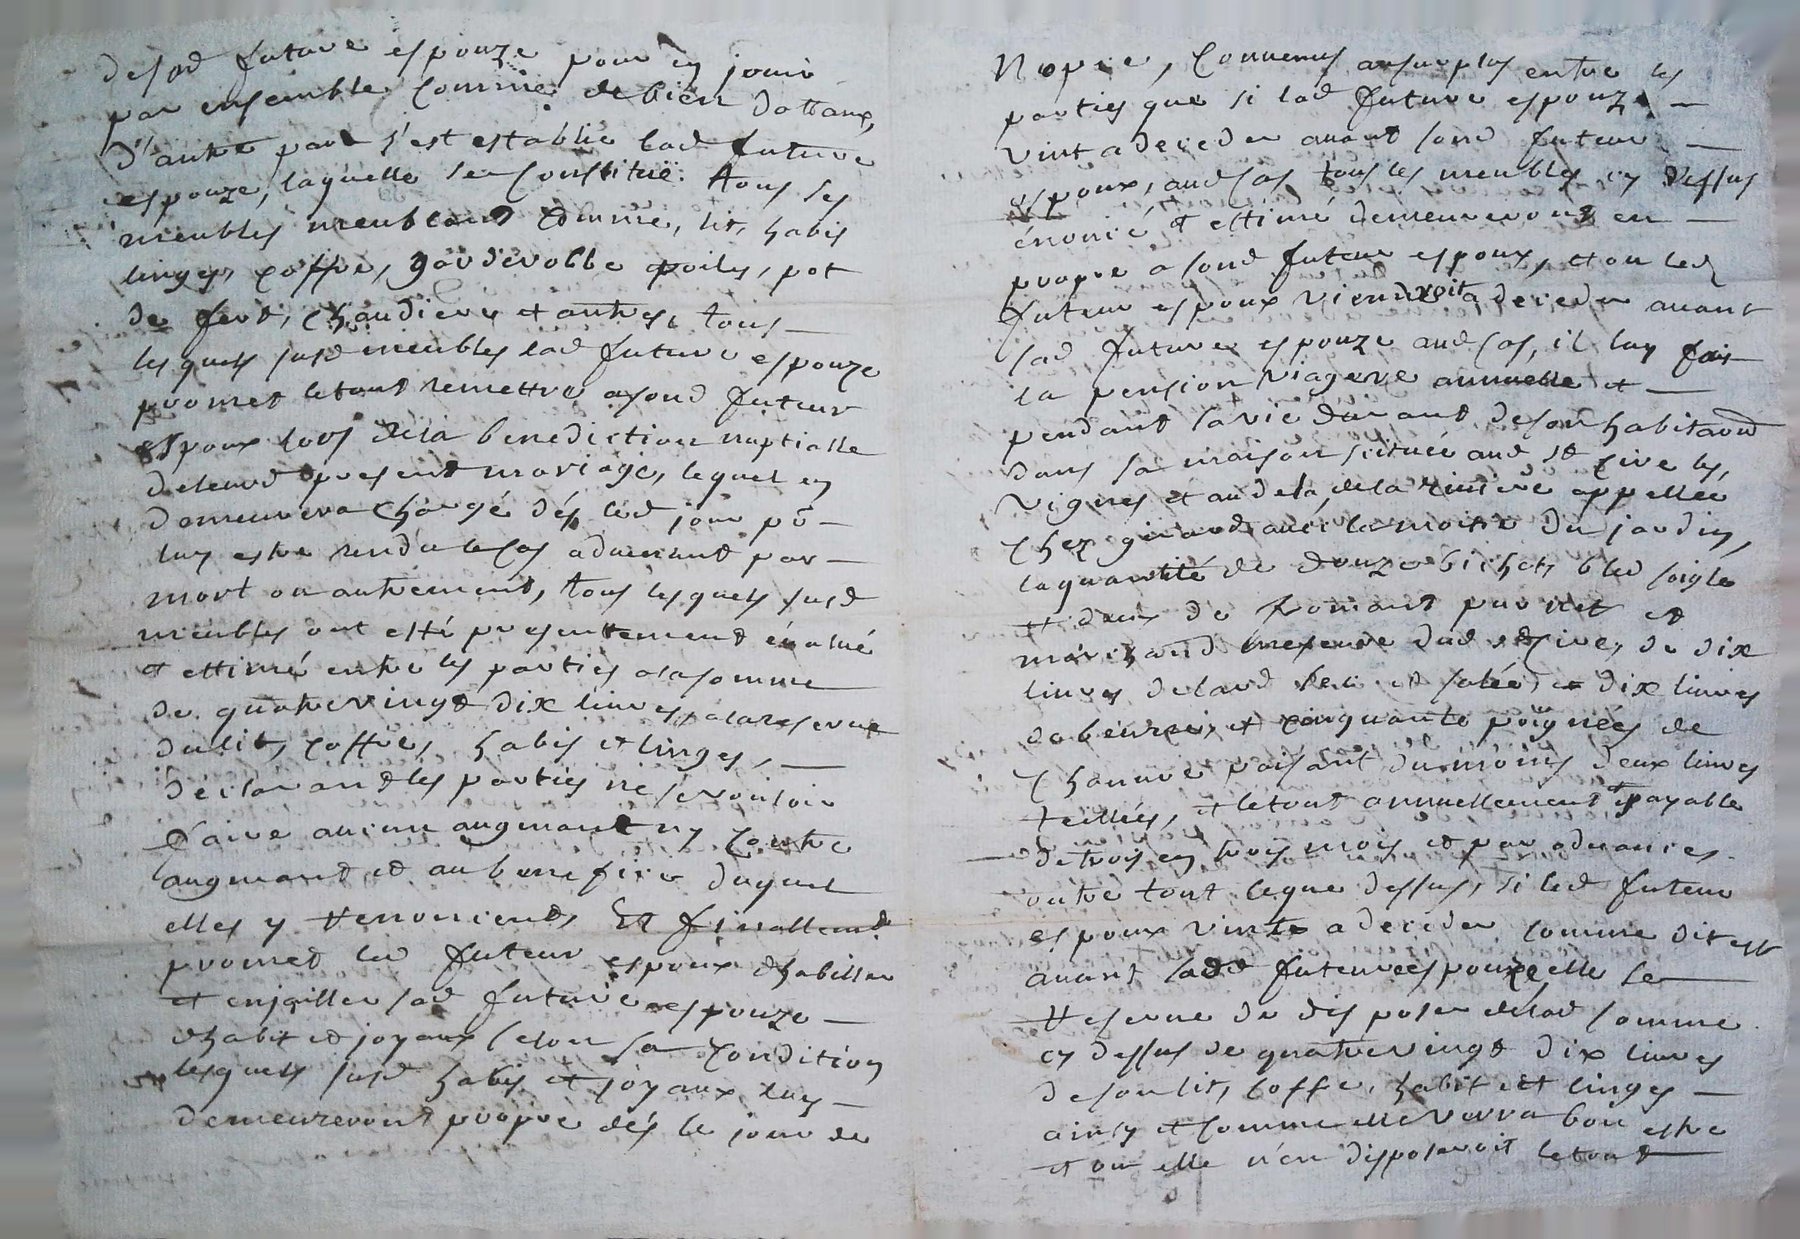 desad future espouze pour en jouir
par ensemble comme de bien dottaux,
d'autre part s'est establie lad future
espouze, laquelle se constitue tous ses
meubles meublant comme, lit, habis
linges, coffre, garderobbe poiles, pot
de fert, chaudiere et autres, tous
les quels susd meubles lad future espouze
promet le tout remettre a sond futeur
espoux lors dela benediction nuptialle
deleurd present mariage, lequel en
demeurera chargé dés led jour pō
luy estre rendu le cas aduenant par
mort ou autrement, tous lesquels susd
meubles ont esté presentement éualué
et ettimé entre les parties ala somme
de quatrevingt dix liures, ala reserue
du lit, coffre, habis et linges,
declarant les parties ne se vouloir
faire aucun augmant ny contre
augmant et au benefice duquel
elles y renonciend, Et finallemt
promet led futeur espoux dhabiller
et enjoiller sad future espouze
dhabit et joyaux selon sa condition
lesquels susd habis et joyaux luy
demeureront propre dés le jour de
Nopce, Conuenus ausurplus entre les
parties que si lad future espouze
vint a deceder auant sond futeur
espoux, aud cas tous les meubles cy dessus
énoncé et ettimé demeureront en
propre a sond futeur espoux, et ou led
futeur espoux viendroit a deceder auant
sad future espouze aud cas, il luy fait
la pension viagere annuelle et
pendant sa vie durant de son habitaōn
dans sa maison scituée aud st cire les
vignes et au dela dela riuiere appellée
chez girard auec la moitié du jardin,
la quantité de douze bichets bled soigle
et deux de fromant pur net et
marchand mesure dud st Cire, de dix
liures delard salé, dix liures
de beurre, et cinquante poignées de
chanure paisant du moins deux liures
teillées, et le tout annuellement et payable
de trois en trois mois et par aduances
outre tout ceque dessus, si led futeur
espoux vint a deceder comme dit est
auant sadd future espouze elle se
reserue de disposer delad somme
cy dessus de quatrevingt dix liures
de son lit, coffe, habit et linges
ainsy et comme elle verra bon estre
et ou elle n'en disposeroit le tout